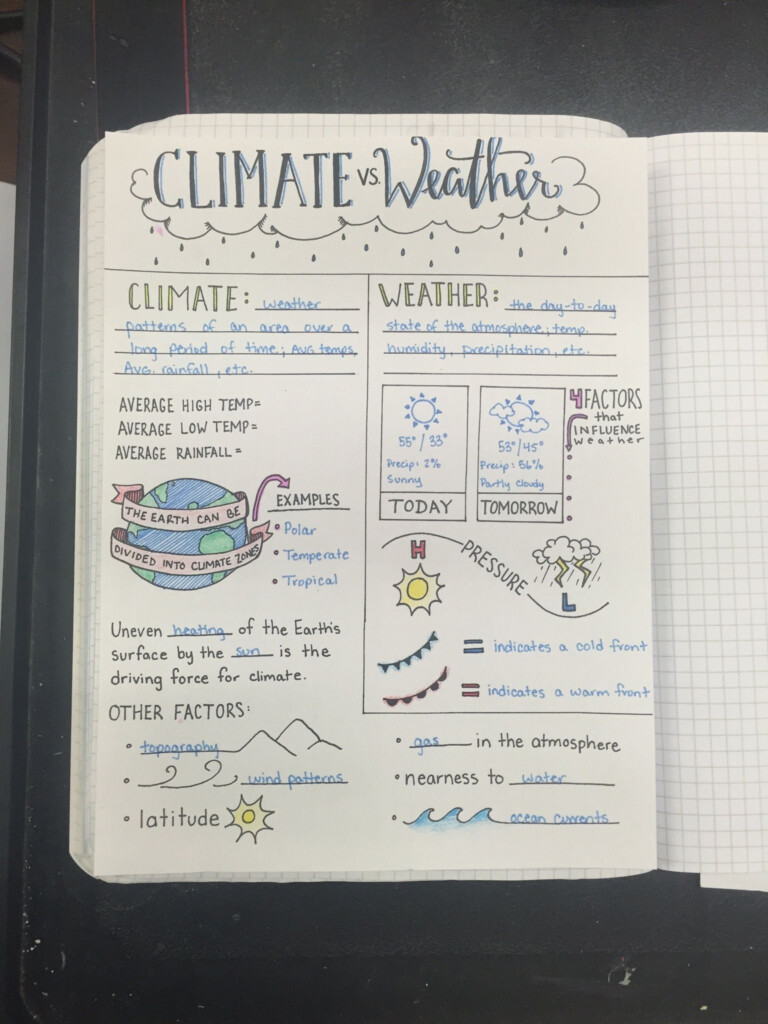 CLIMATE VS. Weather
CLIMATE: weather
patterns of an area over a
long period of time; Avg. temps,
Avg. rainfall, etc.
AVERAGE HIGH TEMP=
AVERAGE LOW TEMP=
AVERAGE RAINFALL=
THE EARTH CAN BE
DIVIDED INTO CLIMATE ZONES
EXAMPLES
• Polar
• Temperate
• Tropical
Uneven heating of the Earth's
surface by the sun is the
driving force for climate.
WEATHER: the day-to-day
state of the atmosphere; temp.
humidity, precipitation, etc.
55° / 33°
Precip: 2%
Sunny
TODAY
53°/45°
Precip: 56%
Partly cloudy
TOMORROW
4 FACTORS
that
INFLUENCE
weather
H
PRESSURE
L
= indicates a cold front
= indicates a warm front
OTHER FACTORS:
• topography
• wind patterns
• latitude
• gas in the atmosphere
• nearness to water
• ocean currents